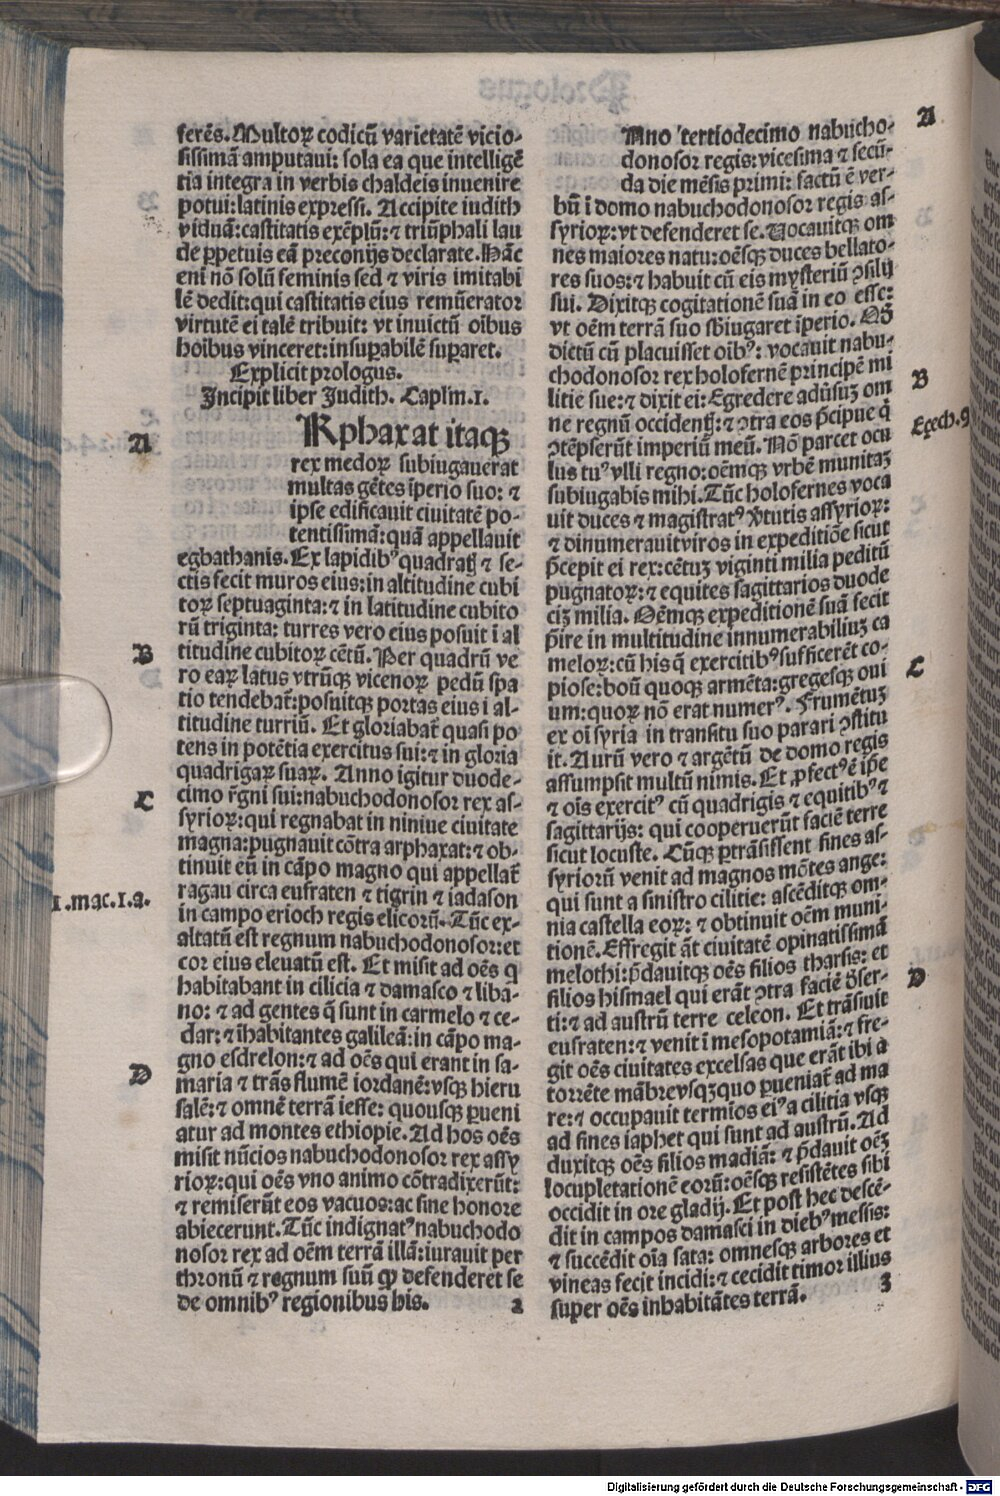 ferẽs. Multoꝝ codicũ varietatẽ vicio⸗
sissimã amputaui: sola ea que intelligẽ
tia integra in verbis chaldeis inuenire
potui: latinis expressi. Accipite iudith
viduã: castitatis exẽplũ: ⁊ triũphali lau
de ꝑpetuis eã preconijs declarate. Hãc
eni nõ solũ feminis sed ⁊ viris imitabi
lẽ dedit: qui castitatis eius remũerator
virtutẽ ei talẽ tribuit: vt inuictũ oĩbus
hoĩbus vinceret: insuꝑabilẽ suꝑaret.
Explicit prologus.
Incipit liber Judith. Caplm. 1.
A
Rphaxat itaqꝫ
rex medoꝝ subiugauerat
multas gẽtes ĩperio suo: ⁊
ipse edificauit ciuitatẽ po⸗
tentissimã: quã appellauit
egbathanis. Ex lapidibꝰ quadratꝭ ⁊ se⸗
ctis fecit muros eius: in altitudine cubi
toꝝ septuaginta: ⁊ in latitudine cubito
rũ triginta: turres vero eius posuit ĩ al
B
titudine cubitoꝝ cẽtũ. Per quadrũ ve
ro eaꝝ latus vtrũqꝫ vicenoꝝ pedũ spa
tio tendebat᷑: posuitqꝫ portas eius ĩ al⸗
titudine turriũ. Et gloriabat᷑ quasi po
tens in potẽtia exercitus sui: ⁊ in gloria
quadrigaꝝ suaꝝ. Anno igitur duode⸗
C
cimo r̃gni sui: nabuchodonosor rex as⸗
syrioꝝ: qui regnabat in niniue ciuitate
magna: pugnauit cõtra arphaxat: ⁊ ob⸗
tinuit eũ in cãpo magno qui appellat᷑
1. mac. 1. a.
ragau circa eufraten ⁊ tigrin ⁊ iadason
in campo erioch regis elicorũ. Tũc ex⸗
altatũ est regnum nabuchodonosor: et
cor eius eleuatũ est. Et misit ad oẽs q̃
habitabant in cilicia ⁊ damasco ⁊ liba⸗
no: ⁊ ad gentes q̃ sunt in carmelo ⁊ ce⸗
dar: ⁊ ĩhabitantes galileã: in cãpo ma⸗
gno esdrelon: ⁊ ad oẽs qui erant in sa⸗
D
maria ⁊ trãs flumẽ iordanẽ: vsqꝫ hieru
salẽ: ⁊ omnẽ terrã iesse: quousqꝫ ꝑueni
atur ad montes ethiopie. Ad hos oẽs
misit nũcios nabuchodonosor rex assy
rioꝝ: qui oẽs vno animo cõtradixerũt:
⁊ remiserũt eos vacuos: ac sine honore
abiecerunt. Tũc indignatꝰ nabuchodo
nosor rex ad oẽm terrã illã: iurauit per
thronũ ⁊ regnum suũ ꝙ defenderet se
de omnibꝰ regionibus his. 2
A
ANno tertiodecimo nabucho⸗
donosor regis: vicesima ⁊ secũ⸗
da die mẽsis primi: factũ ẽ ver⸗
bũ ĩ domo nabuchodonosor regis as⸗
syrioꝝ: vt defenderet se. Vocauitqꝫ om
nes maiores natu: oẽsqꝫ duces bellato⸗
res suos: ⁊ habuit cũ eis mysteriũ ꝯsilij
sui. Dixitqꝫ cogitationẽ suã in eo esse:
vt oẽm terrã suo sb̃iugaret ĩperio. Qd̃
dictũ cũ placuisset oĩbꝰ: vocauit nabu⸗
chodonosor rex holofernẽ principẽ mi
B
litie sue: ⁊ dixit ei: Egredere aduersuꝫ om
ne regnũ occidentꝭ: ⁊ ꝯtra eos p̃cipue q̃
Ezech. 9
ꝯtẽpserũt imperiũ meũ. Nõ parcet ocu
lus tuꝰ vlli regno: oẽmqꝫ vrbẽ munitaꝫ
subiugabis mihi. Tũc holofernes voca
uit duces ⁊ magistratꝰ v̓tutis assyrioꝝ:
⁊ dinumerauit viros in expeditiõe sicut
p̃cepit ei rex: cẽtuꝫ viginti milia peditũ
pugnatoꝝ: ⁊ equites sagittarios duode
cĩ milia. Oẽmqꝫ expeditionẽ suã fecit
p̃ire in multitudine innumerabiliuꝫ ca
meloꝝ: cũ his q̃ exercitibꝰ sufficerẽt co⸗
C
piose: boũ quoqꝫ armẽta: gregesqꝫ oui
um: quoꝝ nõ erat numerꝰ. Frumẽtuꝫ
ex oĩ syria in transitu suo parari ꝯstitu
it. Aurũ vero ⁊ argẽtũ de domo regis
assumpsit multũ nimis. Et ꝓfectꝰ ẽ ip̃e
⁊ oĩs exercitꝰ cũ quadrigis ⁊ equitibꝰ ⁊
sagittarijs: qui cooperuerũt faciẽ terre
sicut locuste. Cũqꝫ ꝑtrãsissent fines as⸗
syriorũ venit ad magnos mõtes ange:
qui sunt a sinistro cilitie: ascẽditqꝫ om⸗
nia castella eoꝝ: ⁊ obtinuit oẽm muni⸗
tionẽ. Effregit ãt ciuitatẽ opinatissimã
melothi: p̃dauitqꝫ oẽs filios tharsis: et
D
filios hismael qui erãt ꝯtra faciẽ d̓ser⸗
ti: ⁊ ad austrũ terre celeon. Et trãsiuit
eufraten: ⁊ venit ĩ mesopotamiã: ⁊ fre⸗
git oẽs ciuitates excelsas que erãt ibi a
torrẽte mãbre vsqꝫ quo ꝑueniat᷑ ad ma
re: ⁊ occupauit termĩos eiꝰ a cilitia vsqꝫ
ad fines iaphet qui sunt ad austrũ. Ad
duxitqꝫ oẽs filios madiã: ⁊ p̃dauit oẽꝫ
locupletationẽ eorũ: oẽsqꝫ resistẽtes sibi
occidit in ore gladij. Et post hec descẽ⸗
dit in campos damasci in diebꝰ messis:
⁊ succẽdit oĩa sata: omnesqꝫ arbores et
vineas fecit incidi: ⁊ cecidit timor illius
super oẽs inhabitãtes terrã. 3
Digitalisierung gefördert durch die Deutsche Forschungsgemeinschaft - DFG